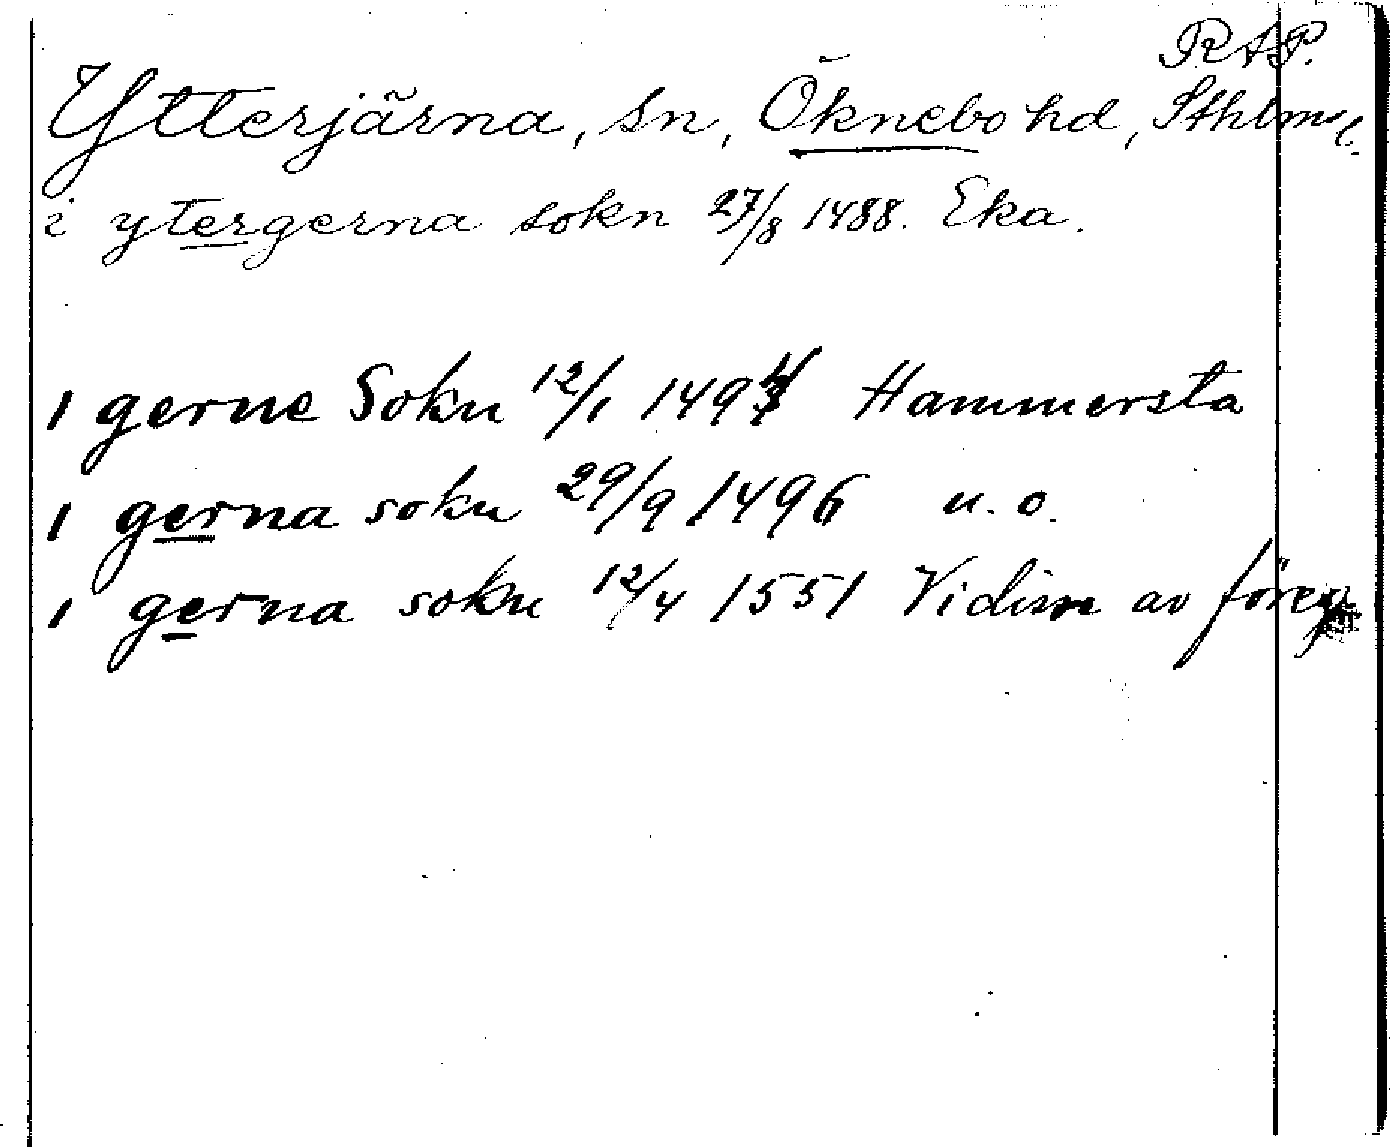 RAP.
Ytterjärna, sn, Öknebo hd, Sthlms l.
i ytergerna sokn 27/8 1488. Eka.
i gerne Sokn 12/1 1494 Hammersta
i gerna sokn 29/9 1496 u. o.
i gerna sokn 12/4 1551 Vidim avföreg